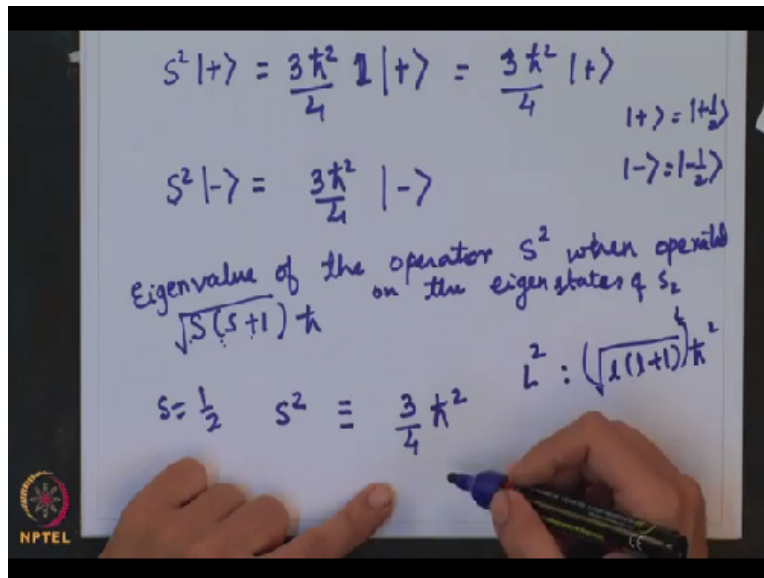 S² |+⟩ = 3ħ²/4 1 |+⟩ = 3ħ²/4 |+⟩
|+⟩ = |+1/2⟩
S² |−⟩ = 3ħ²/4 |−⟩
|−⟩ = |−1/2⟩
Eigenvalue of the operator S² when operated
on the eigenstates of S₂
√S(S+1) ħ
L² : (√l(l+1))² ħ²
S = 1/2 S² ≡ 3/4 ħ²
NPTEL